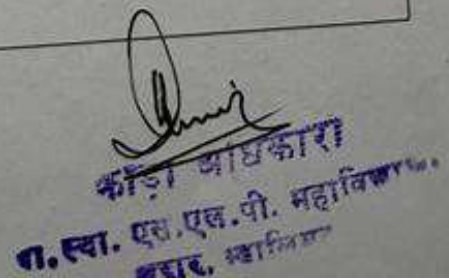 क्रीड़ा अधिकारी
शा. स्वा. एस.एल.पी. महावि
मुरार, ग्वालियर